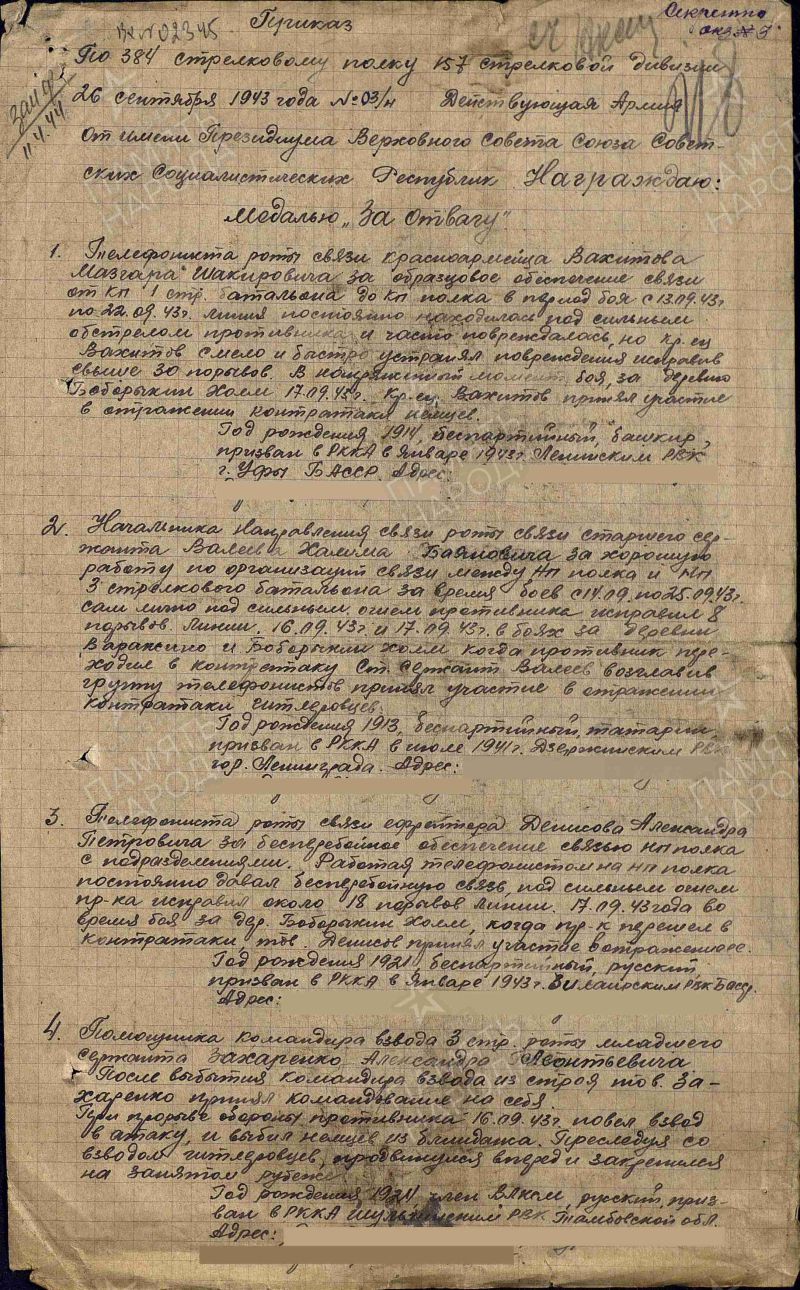 Вх №02345
Приказ
Секретно
экз № 3
По 384 стрелковому полку 157 стрелковой дивизии
26 сентября 1943 года №03/н Действующая Армия
11.4.44
От имени Президиума Верховного Совета Союза Совет-
ских Социалистических Республик Награждаю:
Медалью „За отвагу"
1. Телефониста роты связи красноармейца Вахитова
Мазгара Шакировича за образцовое обеспечение связи
от КП 1 стр. батальона до КП полка в период боя с 13.09.43г
по 22.09.43г. линия постоянно находилась под сильным
обстрелом противника и часто повреждалась, но кр.ец
Вахитов смело и быстро устранял повреждения исправив
свыше 30 порывов. В напряжённый момент боя, за деревню
Боборыкин Холм 17.09.43г. Кр.ец. Вахитов принял участие
в отражении контратаки немцев.
Год рождения 1914, беспартийный, башкир,
призван в РККА в Январе 1943г. Ленинским РВК
г. Уфы БАССР. Адрес:
2. Начальника направления связи роты связи старшего сер-
жанта Валеева Халима Баяновича за хорошую
работу по организации связи между НП полка и НП
3 стрелкового батальона за время боев с 14.09. по 25.09.43г.
сам лично под сильным огнем противника исправил 8
порывов линии. 16.09.43г. и 17.09.43г. в боях за деревни
Вараксино и Боборыкин холм когда противник пере-
ходил в контратаку Ст. сержант Валеев возглавив
группу телефонистов принял участие в отражении
контратаки гитлеровцев.
Год рождения 1913, беспартийный, татарин,
призван в РККА в июле 1941г. Дзержинским РВК
гор. Ленинграда. Адрес:
3. Телефониста роты связи ефрейтора Денисова Александра
Петровича за бесперебойное обеспечение связью НП полка
с подразделениями. Работая телефонистом на НП полка
постоянно давал бесперебойную связь, под сильным огнем
пр-ка исправил около 18 порывов линии. 17.09.43 года во
время боя за дер. Боборыкин Холм, когда пр-к перешел в
контратаки тов. Денисов принял участие в отражении ее.
Год рождения 1921, беспартийный, русский,
призван в РККА в Январе 1943г. Зилаирским РВК Басср.
Адрес:
4. Помощника командира взвода 3 стр. роты младшего
сержанта Захаренко Александра Леонтьевича
После выбытия командира взвода из строя тов. За-
харенко принял командование на себя.
При прорыве обороны противника 16.09.43г. повел взвод
в атаку, и выбил немцев из блиндажа. Преследуя со
взводом гитлеровцев, продвинулся вперед и закрепился
на занятом рубеже
Год рождения 1921 член ВЛКСМ, русский, приз-
ван в РККА РВК Тамбовской обл.
Адрес: